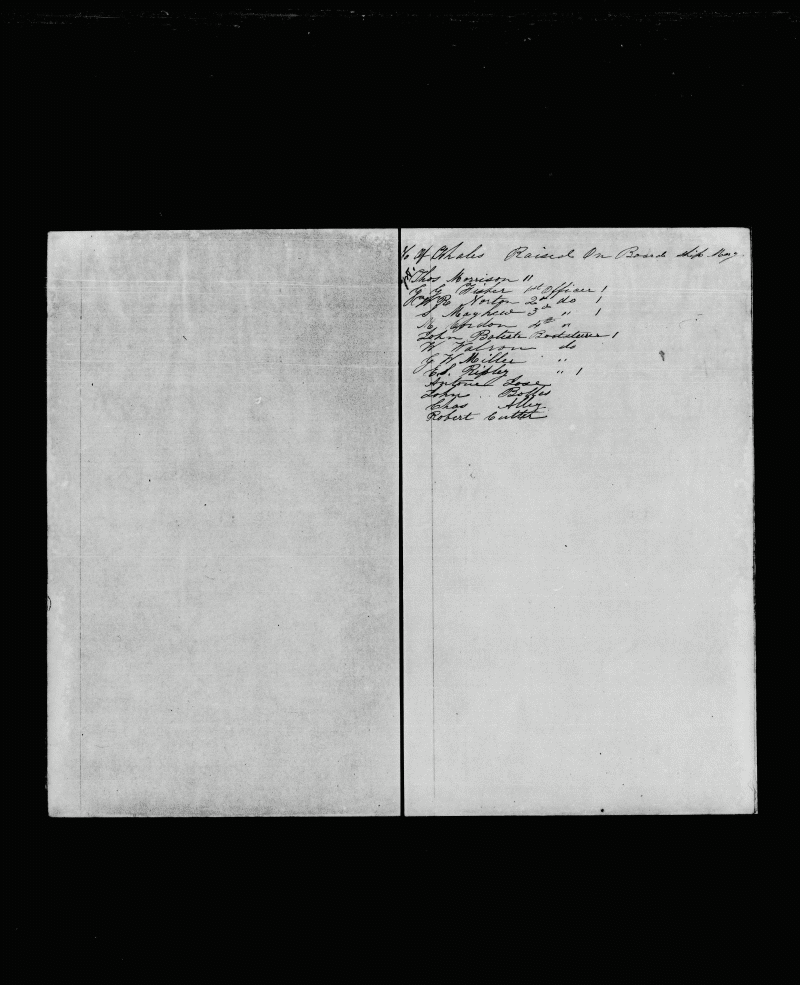 of Whales Raised On Board Ship Mary
Thos Morrison "
G. G. Fisher 1st Officer 1
W R Norton 2nd do 1
S Mayhew 3d " 1
Gordon 4th "
John Batiste Boatsteerer 1
W Watson do
G W Miller "
E.S. Ripley " 1
Antone Jose
John
Chas Alley
Robert Cutter